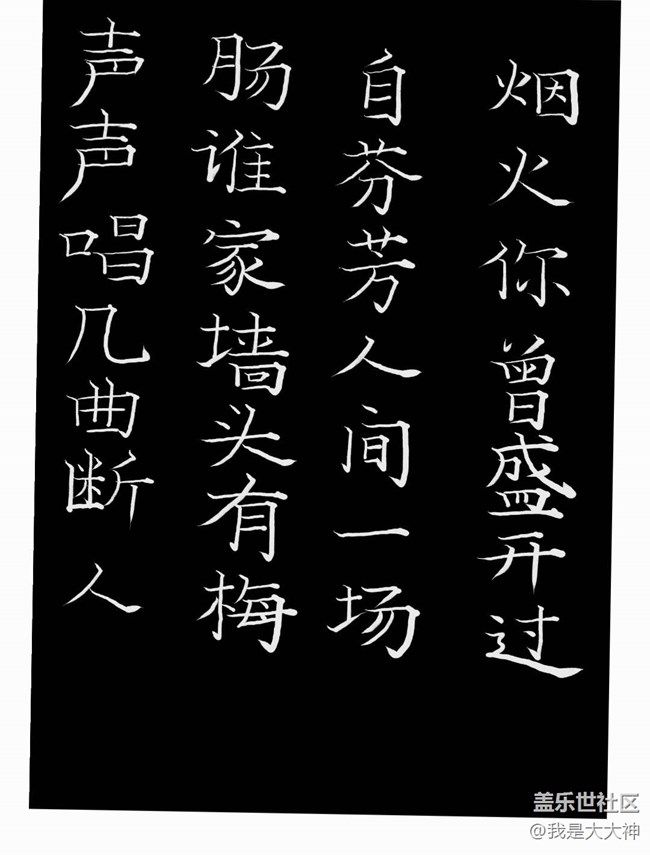 声声唱几曲断人
肠谁家墙头有梅
自芬芳人间一场
烟火你曾盛开过
盖乐世社区
@我是大大神